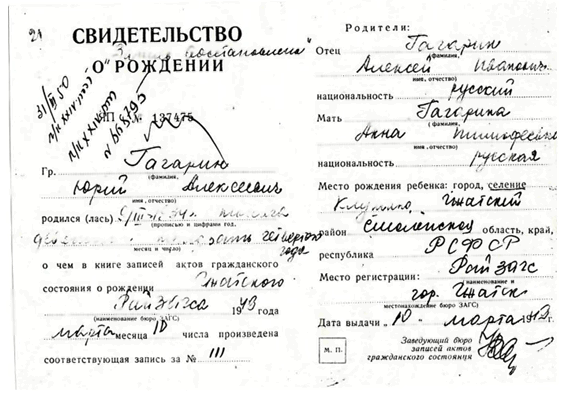 21
СВИДЕТЕЛЬСТВО
О РОЖДЕНИИ
31/III 50
№ 137475
Гр. Гагарин
(фамилия,
Юрий Алексеевич
имя, отчество)
родился (лась) 9/III-34
(прописью и цифрами год,
четвертого
месяц и число) года
о чем в книге записей актов гражданского
состояния о рождении Гжатского
Райзагса 1943 года
(наименование бюро ЗАГС)
марта месяца 10 числа произведена
соответствующая запись за № 111
Родители:
Отец Гагарин
(фамилия,
Алексей Иванович
имя, отчество)
национальность русский
Мать Гагарина
(фамилия,
Анна Тимофеевна
имя, отчество)
национальность русская
Место рождения ребенка: город, селение
Клушино, Гжатский
район Смоленской область, край,
республика РСФСР
Место регистрации: Райзагс
наименование и
гор. Гжатск
местонахождение бюро ЗАГС)
Дата выдачи „10" марта
М. П.
Заведующий бюро
записей актов
гражданского состояния